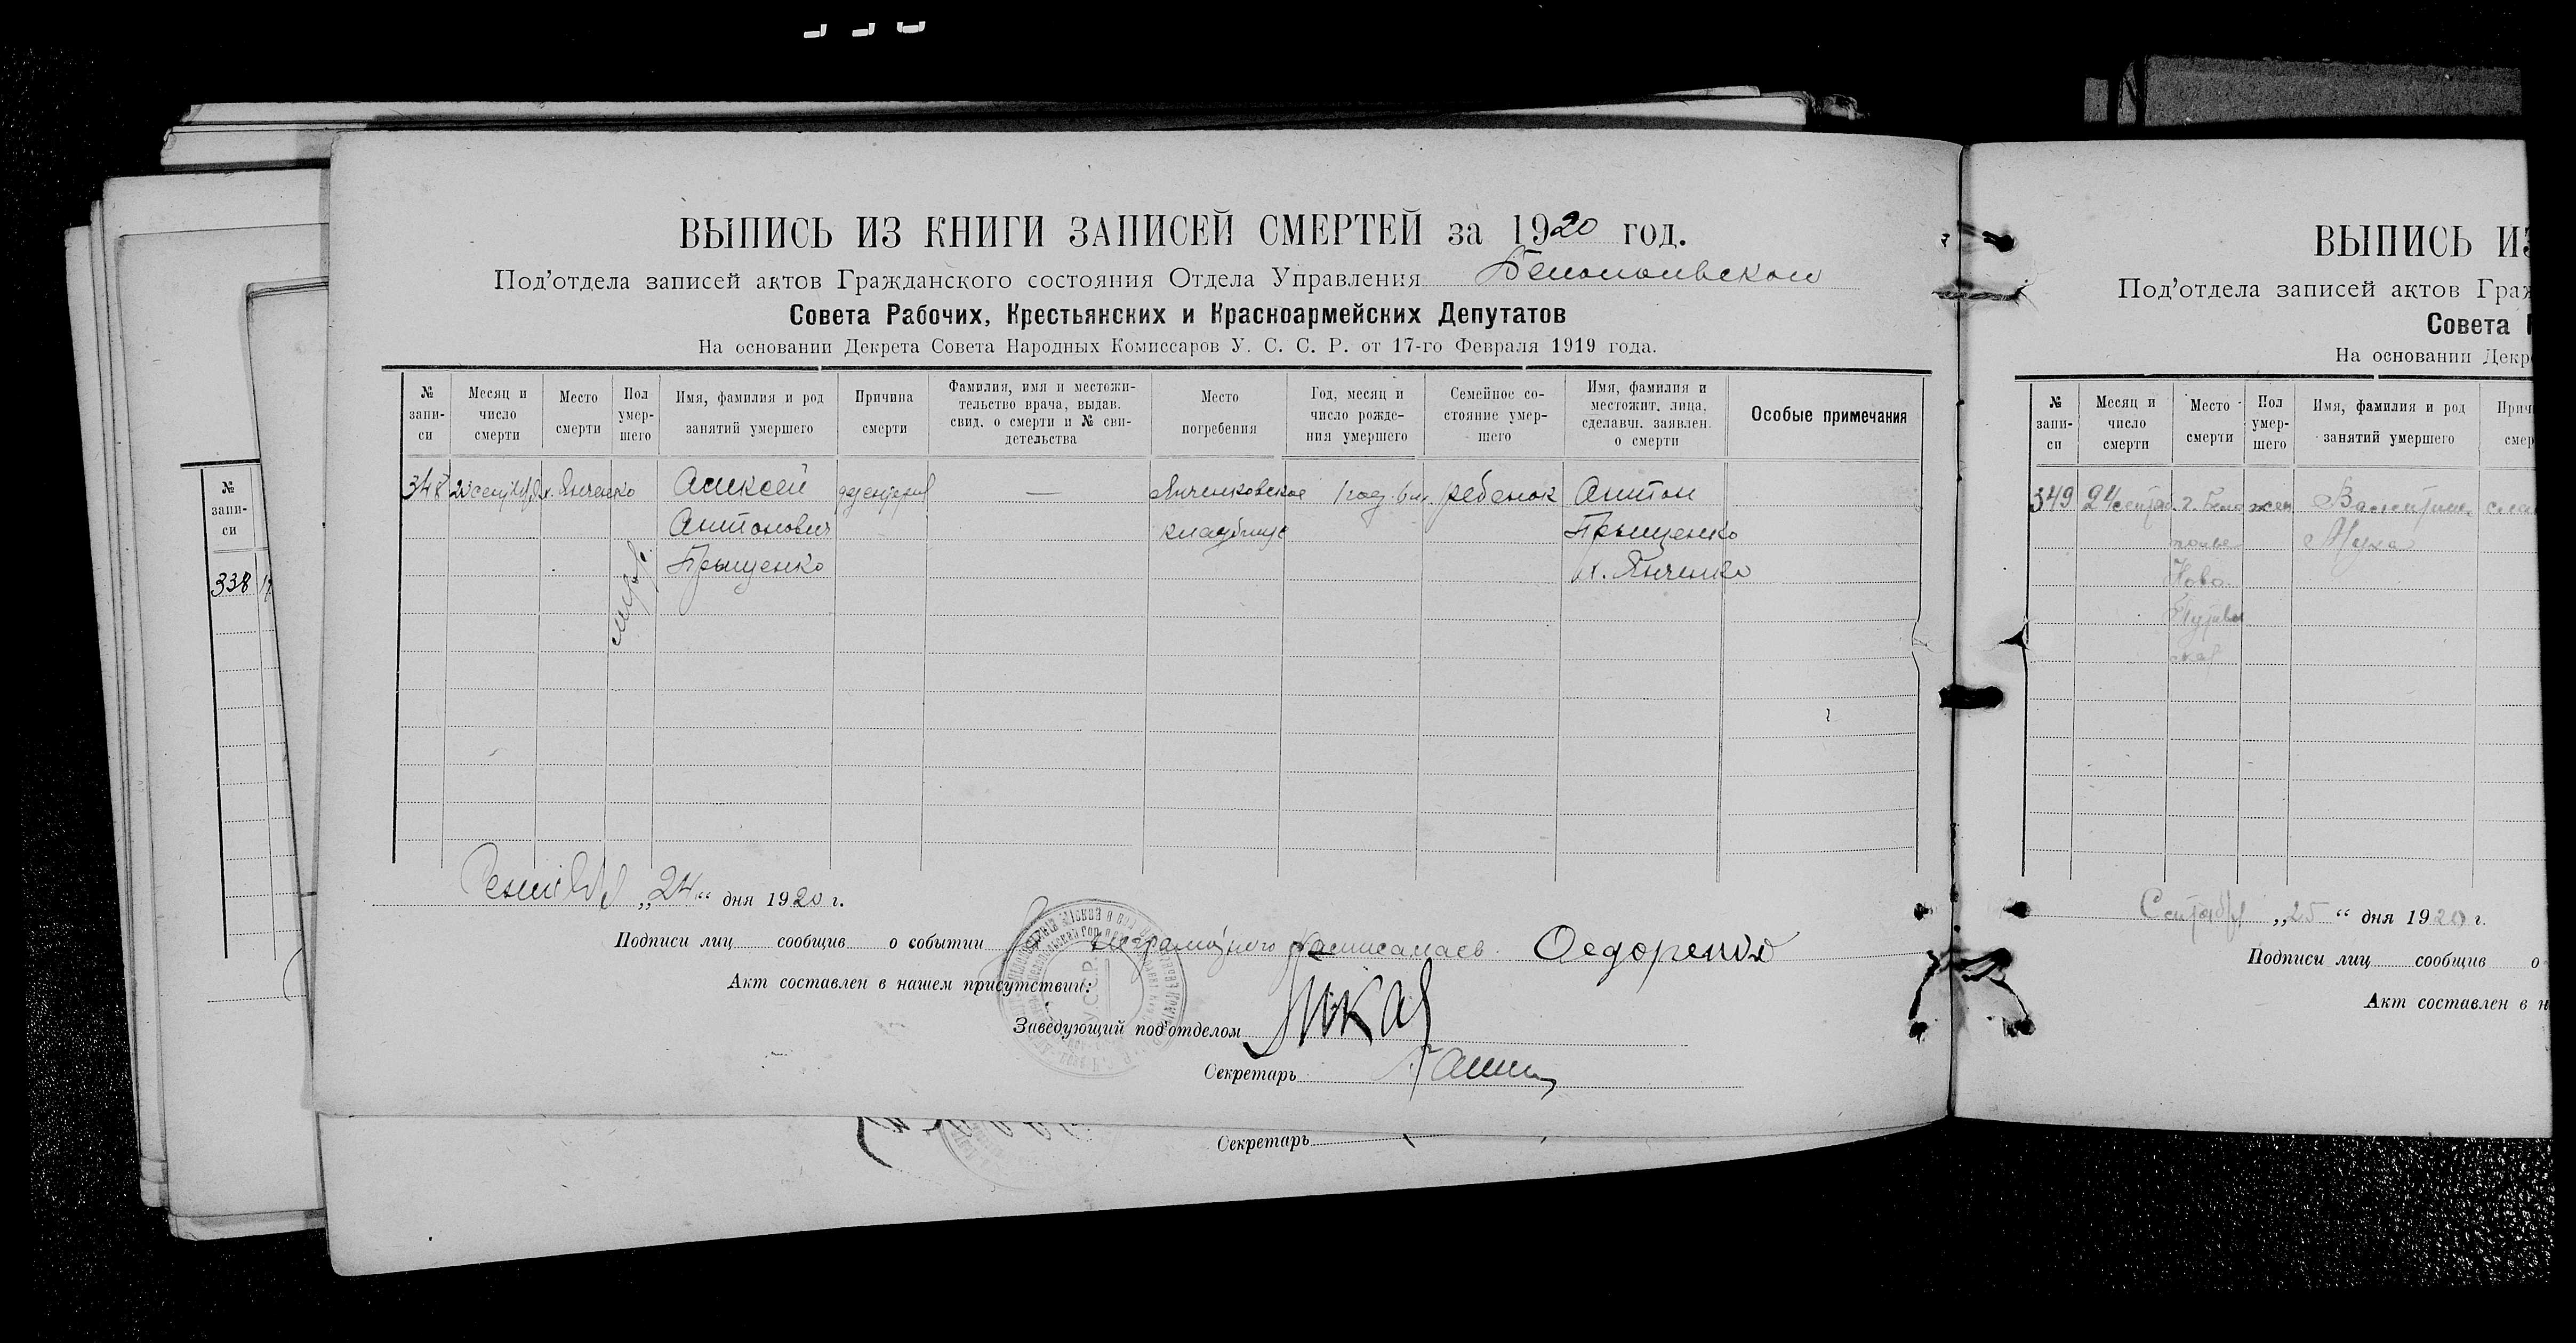 ВЫПИСЬ ИЗ КНИГИ ЗАПИСЕЙ СМЕРТЕЙ за 1920 год.
Под'отдела записей актов Гражданского состояния Отдела Управления Белопольском
Совета Рабочих, Крестьянских и Красноармейских Депутатов
На основании Декрета Совета Народных Комиссаров У. С. С. Р. от 17-го Февраля 1919 года.
№ запи-си
Месяц и число смерти
Место смерти
Пол умер-шего
Имя, фамилия и род занятий умершего
Причина смерти
Фамилия, имя и местожи-тельство врача, выдав. свид. о смерти и № сви-детельства
Место погребения
Год, месяц и число рожде-ния умершего
Семейное со-стояние умер-шего
Имя, фамилия и местожит. лица, сделавш. заявлен. о смерти
Особые примечания
348 23 сентября х. Янченко Алексей дезентерия — Янченковское 1 год. 6 м. ребенок Антон
Антонович кладбище Прыщенко
Прыщенко х. Янченко
"24" дня 1920 г.
Подписи лиц сообщив о событии неграмотного расписалась Федоренко
Акт составлен в нашем присутствии:
У.С.С.Р.
Заведующий под'отделом
Секретарь
Секретарь
№ запи-си
338
ВЫПИСЬ ИЗ
Под'отдела записей актов Граж
Совета
На основании Декр
№ запи-си
Месяц и число смерти
Место смерти
Пол умер-шего
Имя, фамилия и род занятий умершего
Прич
смер
349 24 сентяб. г. Бело жен Валентина
полье Муха
Ново
Путивль
ская
Сентября "25" дня 1920 г.
Подписи лиц сообщив о
Акт составлен в н